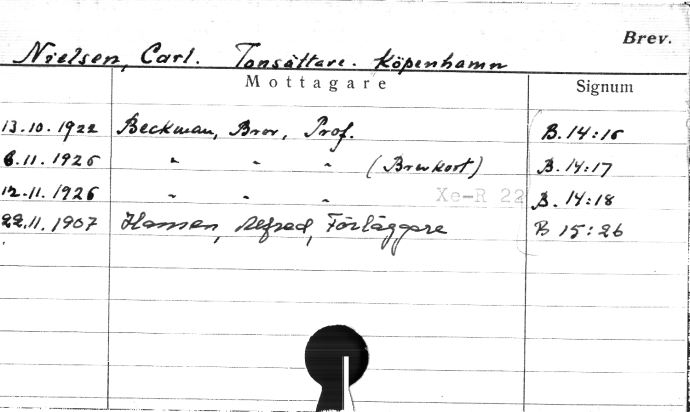 Brev.
Nielsen, Carl. Tonsättare. Köpenhamn
Mottagare Signum
13.10.1922 Beckman, Bror, Prof. B. 14:16
6.11.1926 " " " (Brevkort) B. 14:17
12.11.1926 " " " Xe-R 22 B. 14:18
22.11.1907 Hansen, Alfred, Förläggare B 15:26